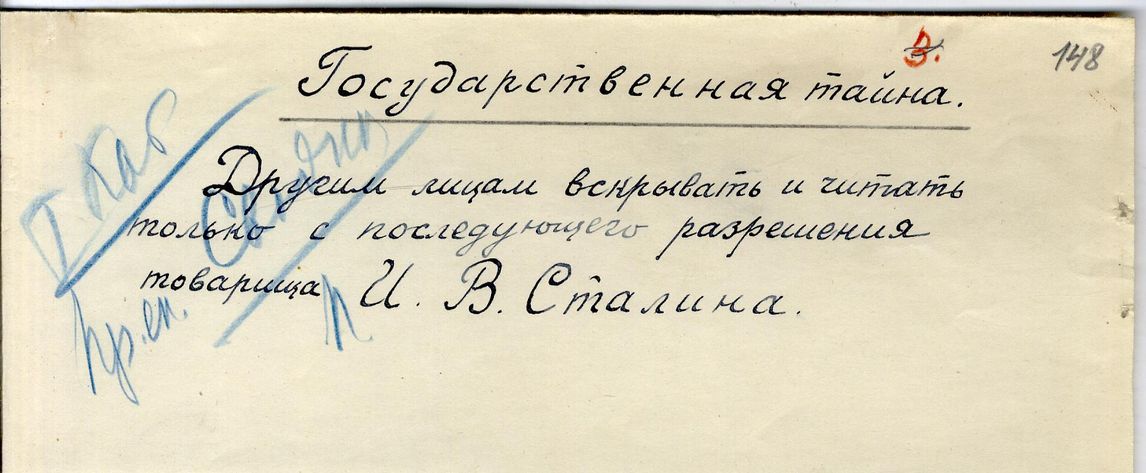 3.
148
Государственная тайна.
Другим лицам вскрывать и читать
только с последующего разрешения
товарища И. В. Сталина.